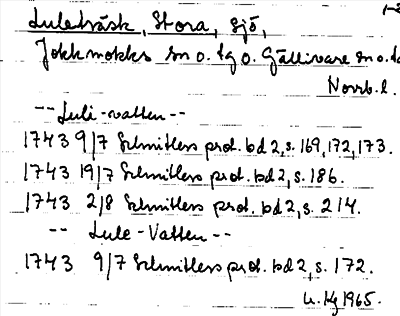 Luleträsk, Stora, Sjö,
Jokkmokks sn o. tg o. Gällivare sn o. t
Norrb. l.
-- Luli-vatten --
1743 9/7 Schnitlers prot. bd 2, s. 169, 172, 173.
1743 19/7 Schnitlers prot. bd 2, s. 186.
1743 2/8 Schnitlers prot. bd 2, s. 214.
-- Lule-Vatten --
1743 9/7 Schnitlers prot. bd 2, s. 172.
1965.